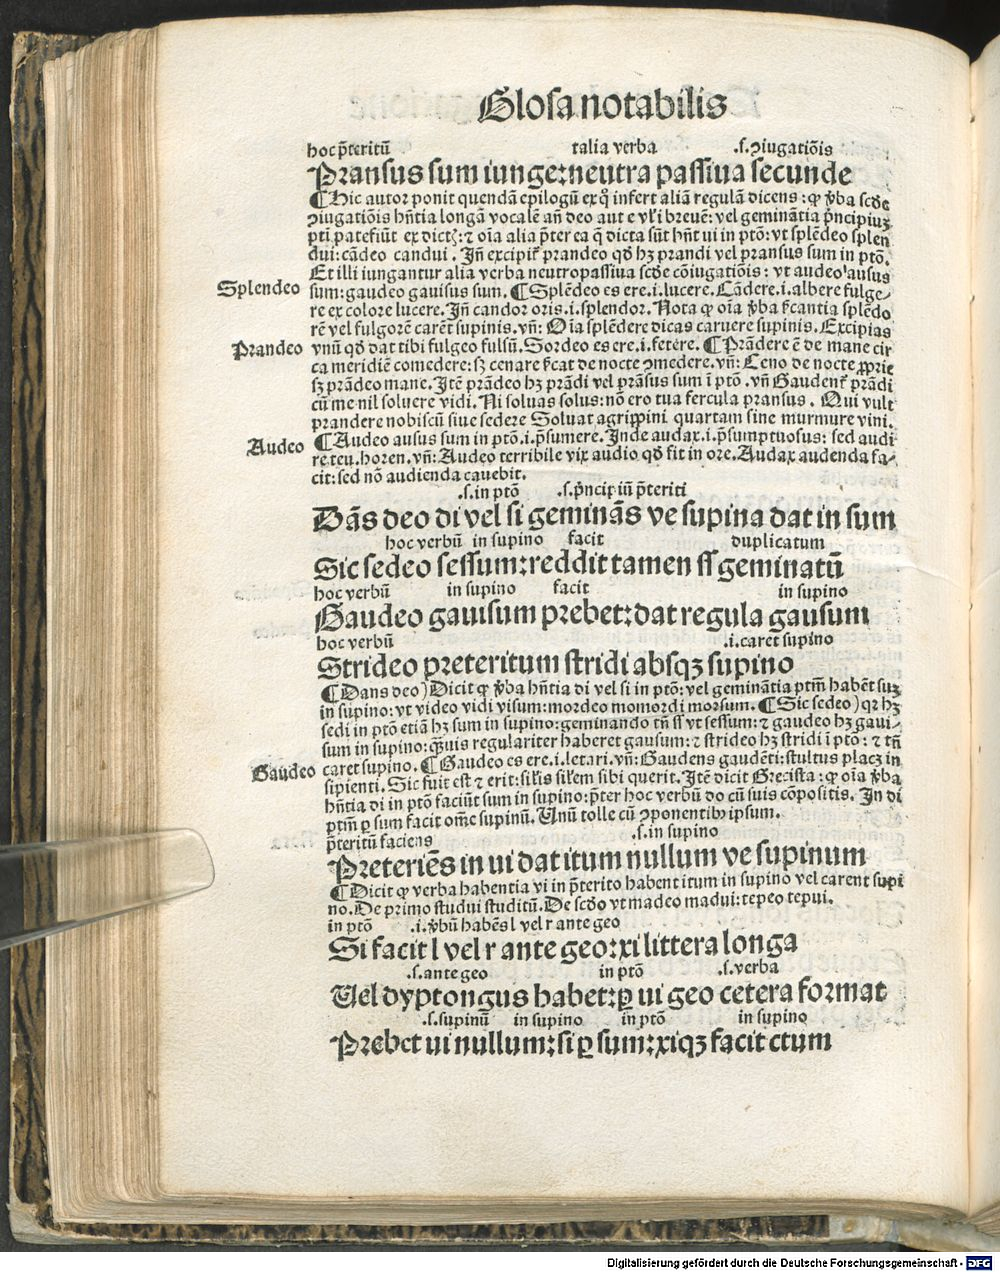 Glosa notabilis
hoc p̄teritū talia verba .s.ꝯiugatiōis
Pransus sum iunge:neutra passiua secunde
¶Hic autor ponit quendā epilogū ex q̊ infert aliā regulā dicens: ꝙ v̄ba scd̓e
ꝯiugatiōis hn̄tia longā vocalē an̄ deo aut e vl̓i breuē: vel geminātia p̄ncipiuꝫ
pt̄i patefiūt ex dictꝫ: ⁊ oīa alia p̄ter ea q̄ dicta sūt hn̄t ui in ptō: vt splēdeo splen
dui: cādeo candui. Jn̄ excipit̉ prandeo qd̓ hꝫ prandi vel pransus sum in ptō.
Splendeo
Et illi iungantur alia verba neutropassiua scd̓e cōiugatiōis: vt audeo ausus
sum: gaudeo gauisus sum. ¶Splēdeo es ere.i.lucere. Cādere.i.albere fulge-
re ex colore lucere. Jn̄ candor oris.i.splendor. Nota ꝙ oīa v̄ba s̓cantia splēdo
rē vel fulgorē carēt supinis. vn̄: Oīa splēdere dicas caruere supinis. Excipias
Prandeo
vnū qd̓ dat tibi fulgeo fulsū. Sordeo es ere.i.fetere. ¶Prādere ē de mane cir
ca meridiē comedere: sꝫ cenare s̓cat de nocte ꝯmedere. vn̄: Ceno de nocte ꝓprie
sꝫ prādeo mane. Jtē prādeo hꝫ prādi vel prāsus sum ī ptō. vn̄ Gaudent̉ prādi
cū me nil soluere vidi. Ni soluas solus: nō ero tua fercula pransus. Qui vult
prandere nobiscū siue sedere Soluat agrippini quartam sine murmure vini.
Audeo
¶Audeo ausus sum in ptō.i.p̄sumere. Jnde audax.i.p̄sumptuosus: sed audi
re teu. horen. vn̄: Audeo terribile vix audio qd̓ fit in ore. Audax audenda fa-
cit: sed nō audienda cauebit.
.s.in ptō .s.p̄ncipiū p̄teriti
Dās deo di vel si geminās ve supina dat in sum
hoc verbū in supino facit duplicatum
Sic sedeo sessum:reddit tamen ss geminatū
hoc verbū in supino facit in supino
Gaudeo gauisum prebet:dat regula gausum
hoc verbū .i.caret supino
Strideo preteritum stridi absqꝫ supino
¶Dans deo) Dicit ꝙ v̄ba hn̄tia di vel si in ptō: vel geminātia ptm̄ habēt suꝫ
in supino: vt video vidi visum: mordeo momordi morsum. ¶Sic sedeo) qꝛ hꝫ
sedi in ptō etiā hꝫ sum in supino: geminando tn̄ ss vt sessum: ⁊ gaudeo hꝫ gaui-
sum in supino: q̄uis regulariter haberet gausum: ⁊ strideo hꝫ stridi ī ptō: ⁊ tn̄
Gaudeo
caret supino. ¶Gaudeo es ere.i.letari. vn̄: Gaudens gaudēti: stultus placꝫ in
sipienti. Sic fuit est ⁊ erit: sil̓is sil̓em sibi querit. Jtē dicit Grecista: ꝙ oīa v̄ba
hn̄tia di in ptō faciūt sum in supino: p̄ter hoc verbū do cū suis cōpositis. Jn di
ptm̄ ꝑ sum facit om̄e supinū. Unū tolle cū ꝯponentibꝫ ipsum.
p̄teritū faciens .s.in supino
Preteriēs in ui dat itum nullum ve supinum
¶Dicit ꝙ verba habentia vi in p̄terito habent itum in supino vel carent supi
no. De primo studui studitū. De scd̓o vt madeo madui: tepeo tepui.
in ptō .i.v̄bū habēs l vel r ante geo
Si facit l vel r ante geo:xi littera longa
.s.ante geo in ptō .s.verba
Uel dyptongus habet:ꝑ ui geo cetera format
.s.supinū in supino in ptō in supino
Prebet ui nullum:si ꝑ sum:xiqꝫ facit ctum
Digitalisierung gefördert durch die Deutsche Forschungsgemeinschaft - DFG